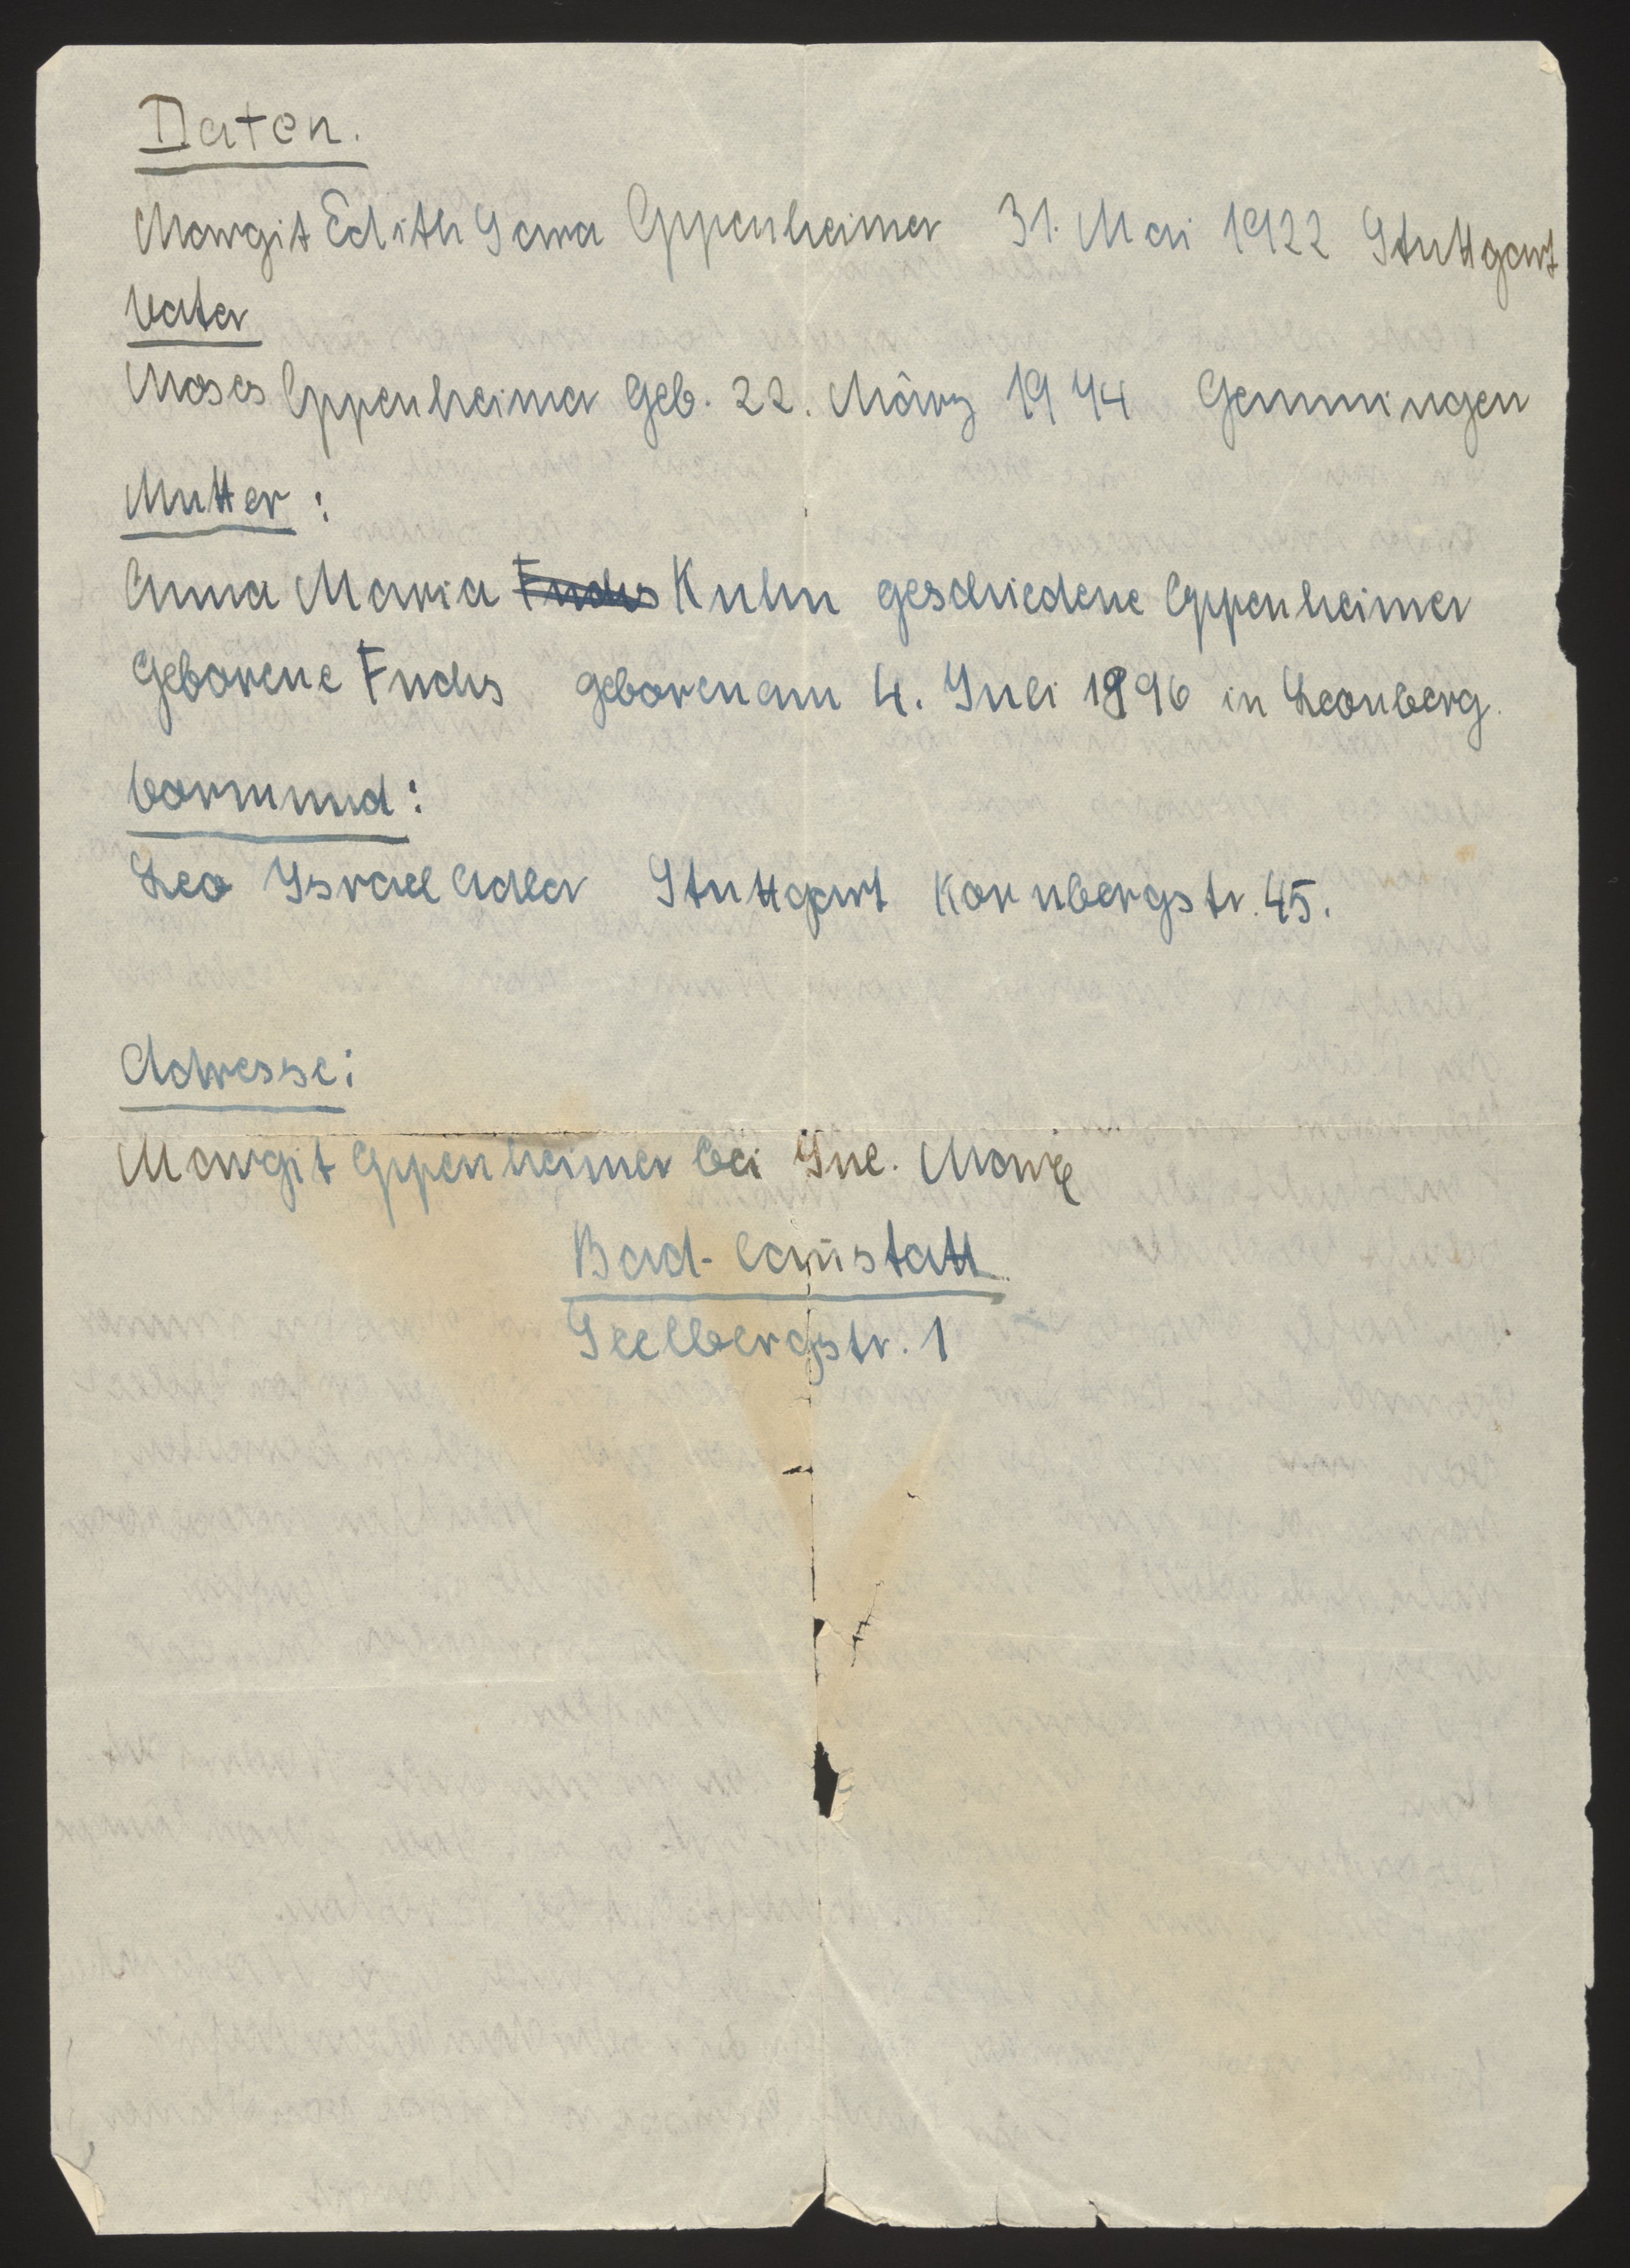 Daten.
Margit Edith Sara Oppenheimer 31. Mai 1922 Stuttgart
Vater
Moses Oppenheimer Geb. 22. März 1944 Gemmingen
Mutter:
Anna Maria Fuchs Kuhn geschiedene Oppenheimer
Geborene Fuchs geboren am 4. Juli 1896 in Leonberg.
Vormund:
Leo Israel Adler Stuttgart Kornbergstr. 45.
Adresse:
Margit Oppenheimer bei Jul. Marx
Bad-Canstatt
Seelbergstr. 1